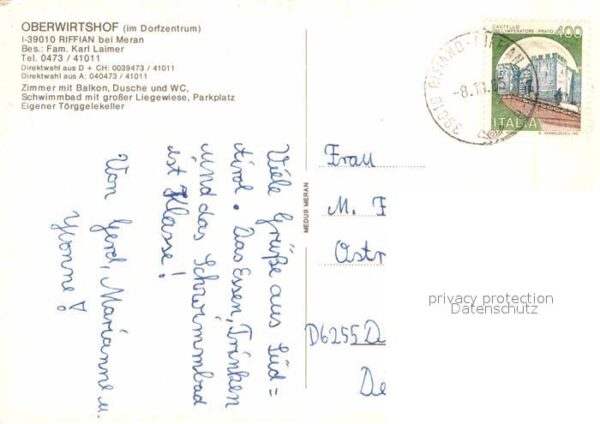 OBERWIRTSHOF (im Dorfzentrum)
I-39010 RIFFIAN bei Meran
Bes.: Fam. Karl Laimer
Tel. 0473 / 41011
Direktwahl aus D + CH: 0039473 / 41011
Direktwahl aus A: 040473 / 41011
Zimmer mit Balkon, Dusche und WC,
Schwimmbad mit großer Liegewiese, Parkplatz
Eigener Törggelekeller
Viele Grüße aus Süd=
tirol. Das Essen, Trinken
und das Schwimmbad
ist Klasse!
Von Gerd, Marianne u.
Yvonne!
MEDUS MERAN
CASTELLO
DELL'IMPERATORE - PRATO
400
ITALIA
Frau
M.
Ostr
D6255
De
privacy protection
Datenschutz